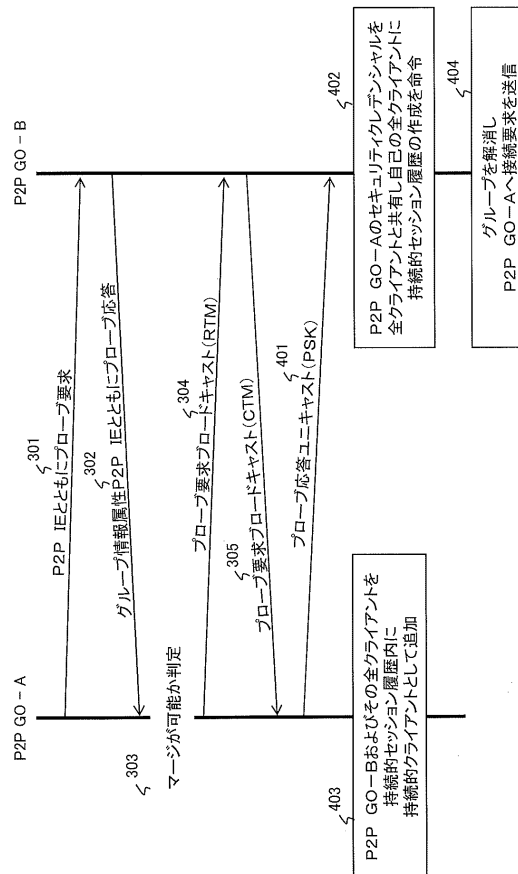 P2P GO-A
P2P GO-B
301
P2P IEとともにプローブ要求
302
グループ情報属性P2P IEとともにプローブ応答
303
マージが可能か判定
304
プローブ要求ブロードキャスト(RTM)
305
プローブ要求ブロードキャスト(CTM)
401
プローブ応答ユニキャスト(PSK)
402
P2P GO-Aのセキュリティクレデンシャルを
全クライアントと共有し自己の全クライアントに
持続的セッション履歴の作成を命令
403
P2P GO-Bおよびその全クライアントを
持続的セッション履歴内に
持続的クライアントとして追加
404
グループを解消し
P2P GO-Aへ接続要求を送信